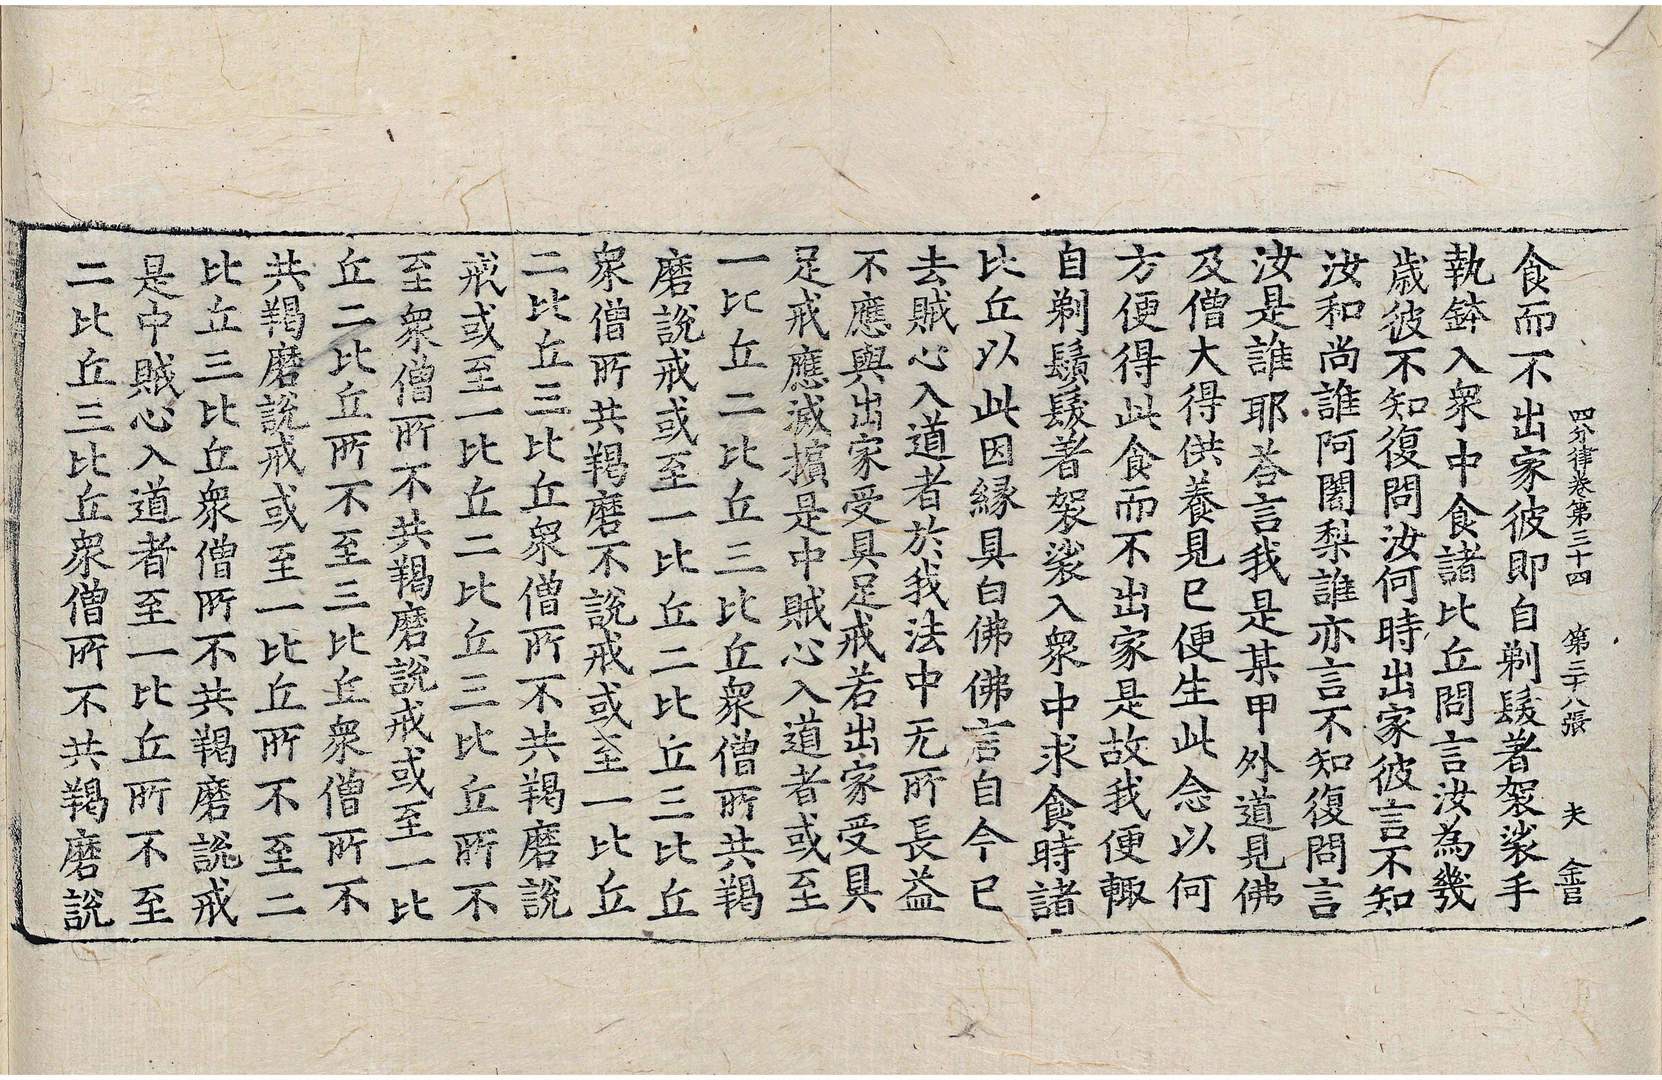 四分律卷第三十四 第三十八張 夫
食而不出家彼即自剃髮著袈裟手
執鉢入衆中食諸比丘問言汝為幾
歲彼不知復問汝何時出家彼言不知
汝和尚誰阿闍梨誰亦言不知復問言
汝是誰耶荅言我是某甲外道見佛
及僧大得供養見已便生此念以何
方便得此食而不出家是故我便輙
自剃鬚髮著袈裟入衆中求食時諸
比丘以此因緣具白佛佛言自今已
去賊心入道者於我法中无所長益
不應與出家受具足戒若出家受具
足戒應滅擯是中賊心入道者或至
一比丘二比丘三比丘衆僧所共羯
磨說戒或至一比丘二比丘三比丘
衆僧所共羯磨不說戒或至一比丘
二比丘三比丘衆僧所不共羯磨說
戒或至一比丘二比丘三比丘所不
至衆僧所不共羯磨說戒或至一比
丘二比丘所不至三比丘衆僧所不
共羯磨說戒或至一比丘所不至二
比丘三比丘衆僧所不共羯磨說戒
是中賊心入道者至一比丘所不至
二比丘三比丘衆僧所不共羯磨說